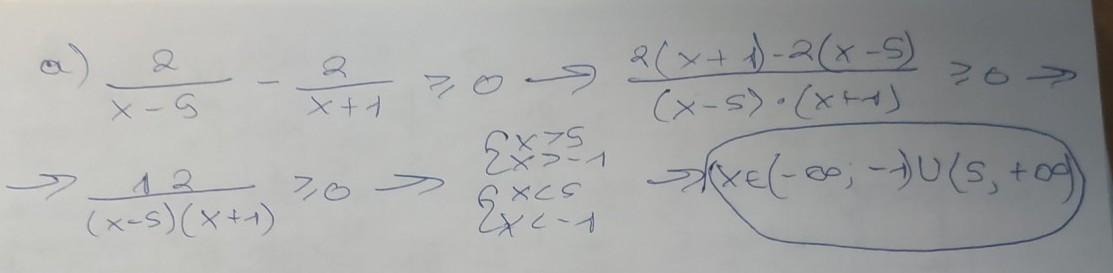 a) 2/(x-5) - 2/(x+1) ≥ 0 → (2(x+1)-2(x-5))/((x-5)·(x+1)) ≥ 0 →
→ 12/((x-5)(x+1)) ≥ 0 → {x>5 {x>-1 {x<5 {x<-1 → x∈(-∞; -1)∪(5, +∞)